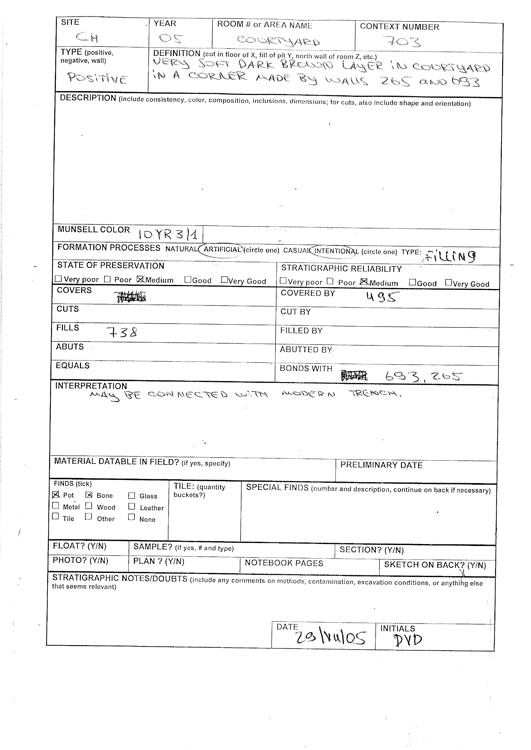 SITE YEAR ROOM # or AREA NAME CONTEXT NUMBER
CH 05 COURTYARD 703
TYPE (positive, negative, wall)
POSITIVE
DEFINITION (cut in floor of X, fill of pit Y, north wall of room Z, etc.)
VERY SOFT DARK BROWN LAYER IN COURTYARD
IN A CORNER MADE BY WALLS 265 AND 693
DESCRIPTION (include consistency, color, composition, inclusions, dimensions; for cuts, also include shape and orientation)
MUNSELL COLOR 10YR 3/1
FORMATION PROCESSES NATURAL ARTIFICIAL (circle one) CASUAL INTENTIONAL (circle one) TYPE: filling
STATE OF PRESERVATION STRATIGRAPHIC RELIABILITY
☐Very poor ☐ Poor ☒Medium ☐Good ☐Very Good ☐Very poor ☐ Poor ☒Medium ☐Good ☐Very Good
COVERS COVERED BY 495
CUTS CUT BY
FILLS 738 FILLED BY
ABUTS ABUTTED BY
EQUALS BONDS WITH 693, 265
INTERPRETATION
MAY BE CONNECTED WITH MODERN TRENCH.
MATERIAL DATABLE IN FIELD? (if yes, specify) PRELIMINARY DATE
FINDS (tick)
☒ Pot ☒ Bone ☐ Glass
☐ Metal ☐ Wood ☐ Leather
☐ Tile ☐ Other ☐ None
TILE: (quantity
buckets?)
SPECIAL FINDS (number and description, continue on back if necessary)
FLOAT? (Y/N) SAMPLE? (if yes, # and type) SECTION? (Y/N)
PHOTO? (Y/N) PLAN ? (Y/N) NOTEBOOK PAGES SKETCH ON BACK? (Y/N)
STRATIGRAPHIC NOTES/DOUBTS (include any comments on methods, contamination, excavation conditions, or anything else
that seems relevant)
DATE INITIALS
29/VII/05 DVD